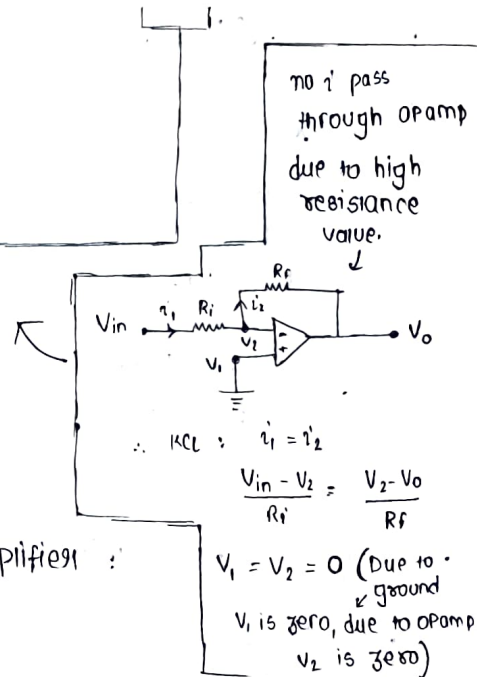 no i pass
through opamp
due to high
resistance
value.
Rf
Vin i₁ Ri i₂
V₂
V₁
- +
Vo
∴ KCL : i₁ = i₂
Vin - V₂ / Ri = V₂ - Vo / Rf
plifier :
V₁ = V₂ = 0 (Due to
ground
V₁ is zero, due to opamp
V₂ is zero)